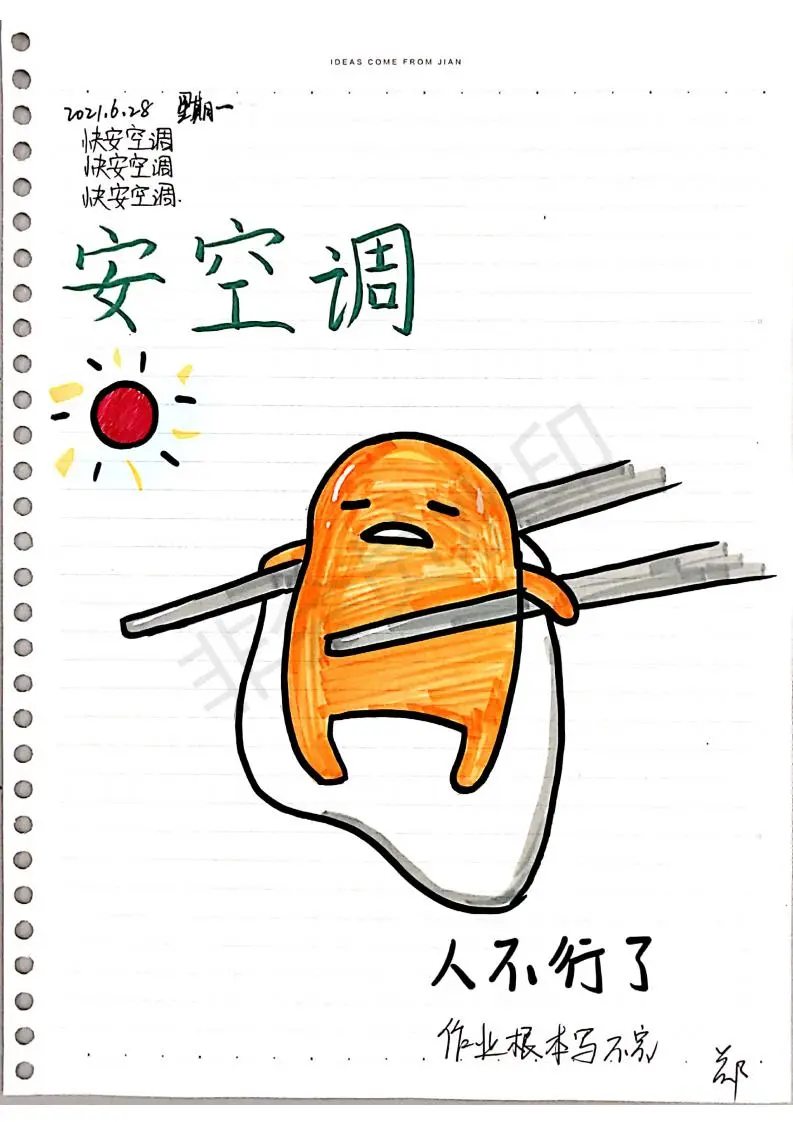 IDEAS COME FROM JIAN
2021.6.28 星期一
快安空调
快安空调
快安空调.
安空调
人不行了
作业根本写不完
郑